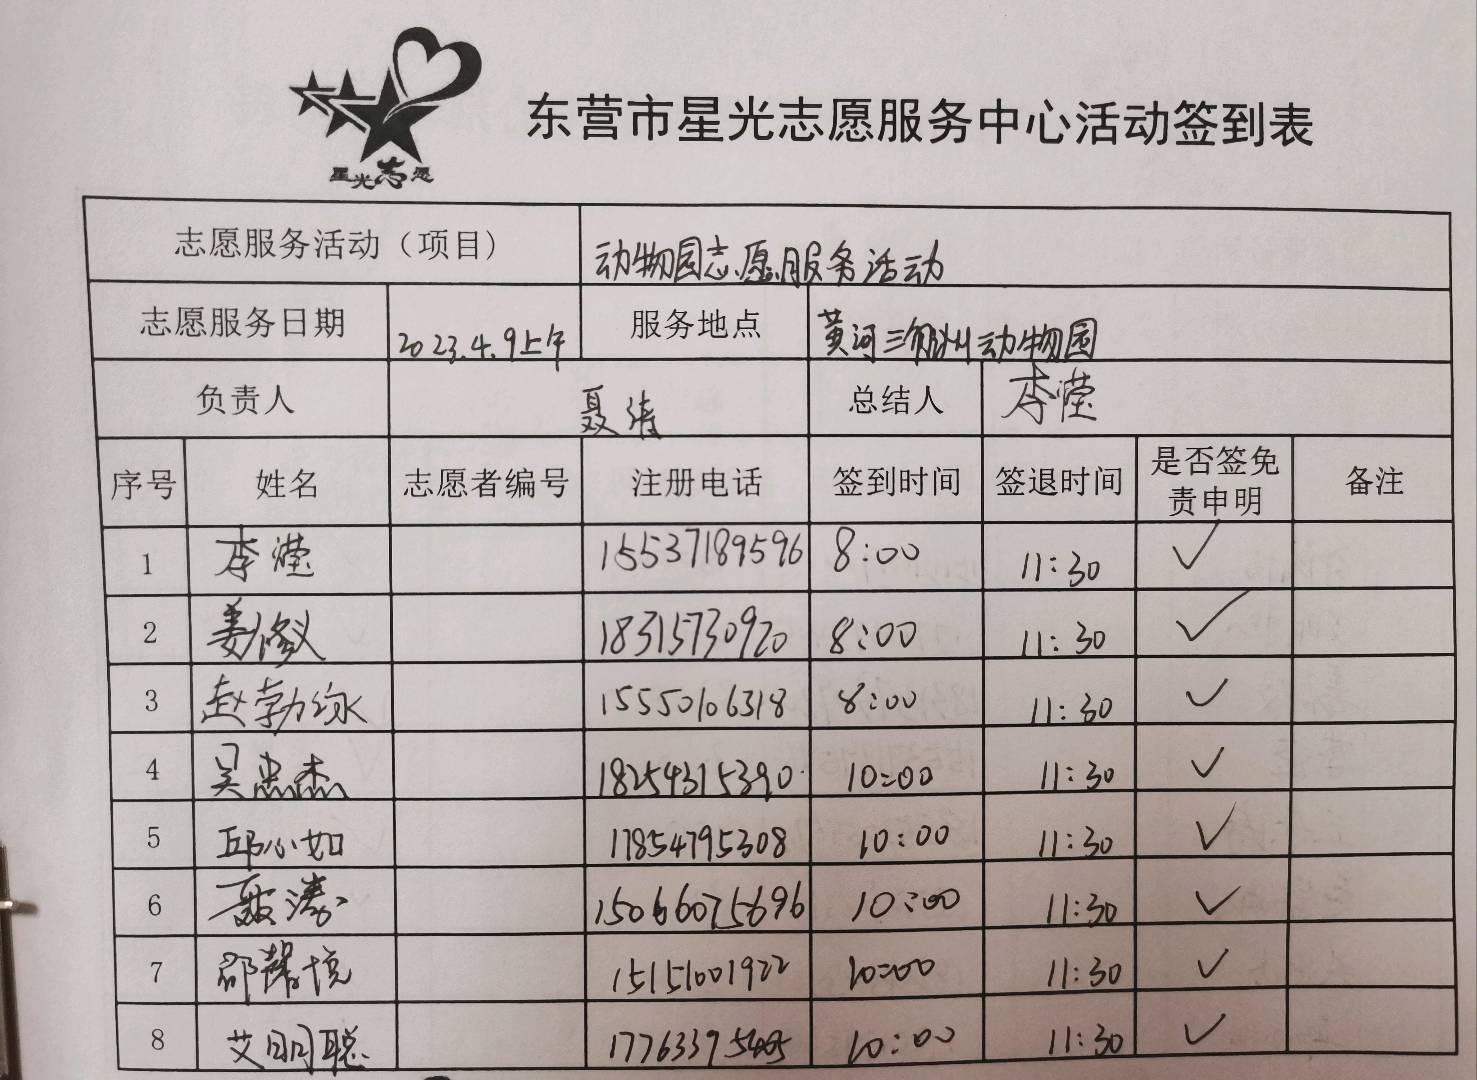 星光志愿
东营市星光志愿服务中心活动签到表
志愿服务活动（项目） 动物园志愿服务活动
志愿服务日期 2023.4.9上午 服务地点 黄河三角洲动物园
负责人 聂涛 总结人 李滢
序号 姓名 志愿者编号 注册电话 签到时间 签退时间 是否签免责申明 备注
1 李滢 15537189596 8:00 11:30 ✓
2 姜修义 18315730920 8:00 11:30 ✓
3 赵勃泳 15550106318 8:00 11:30 ✓
4 吴忠杰 18254315390 10:00 11:30 ✓
5 邱小如 17854795308 10:00 11:30 ✓
6 聂涛 15066075696 10:00 11:30 ✓
7 邵馨悦 15151001922 10:00 11:30 ✓
8 艾明聪 10:00 11:30 ✓